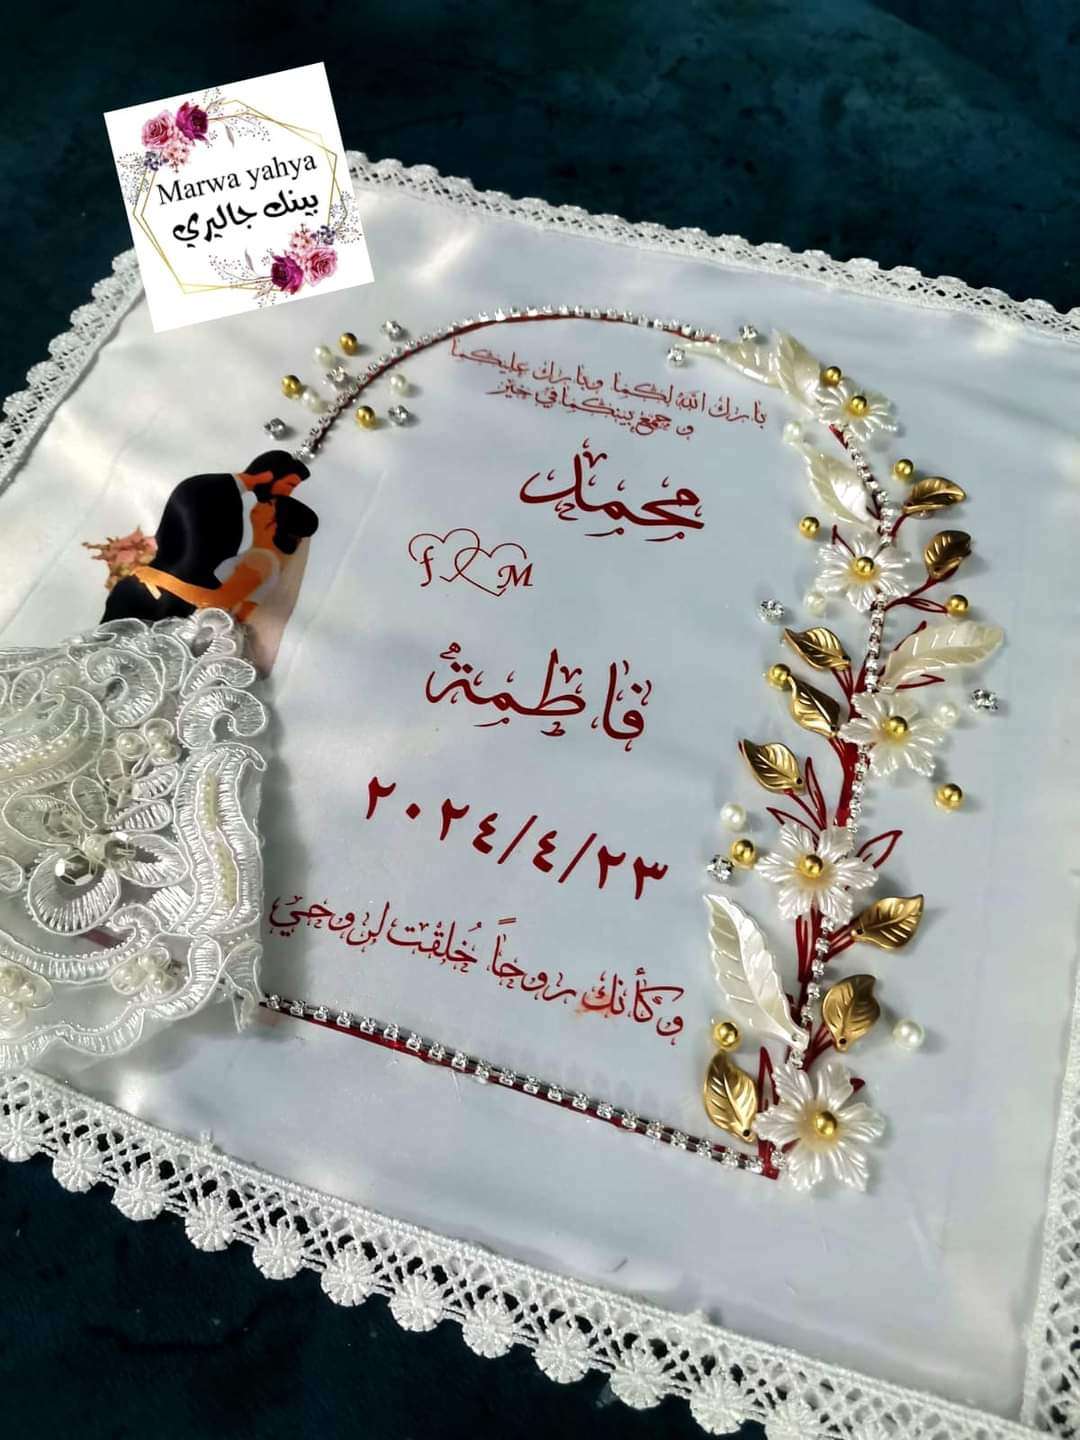 Marwa yahya
بينك جاليري
بارك الله لكما وبارك عليكما
و جمع بينكما في خير
محمد
f M
فاطمة
٢٠٢٤/٤/٢٣
وكأنك روحاً خُلقت لروحي